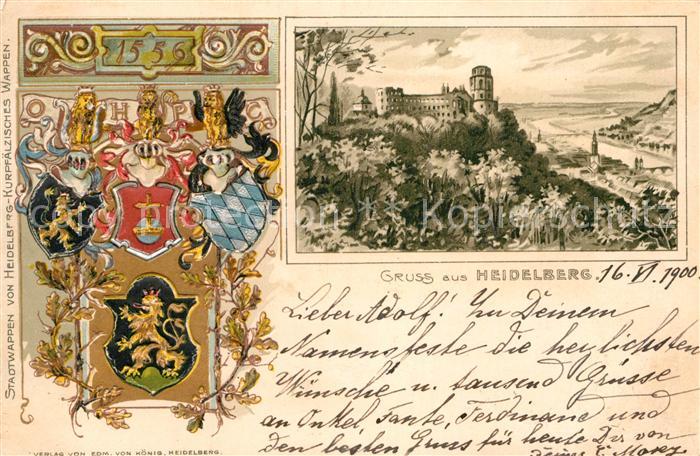 1556
O H P C
STADTWAPPEN VON HEIDELBERG-KURPFÄLZISCHES WAPPEN.
copyright protection ** Kopierschutz
GRUSS aus HEIDELBERG. 16. VI. 1900.
Lieber Adolf! Zu Deinem
Namensfeste die herzlichsten
Wünsche u. tausend Grüsse
an Onkel, Tante, Ferdinand und
den besten Gruss für heute Dir von
VERLAG VON EDM. VON KÖNIG, HEIDELBERG.